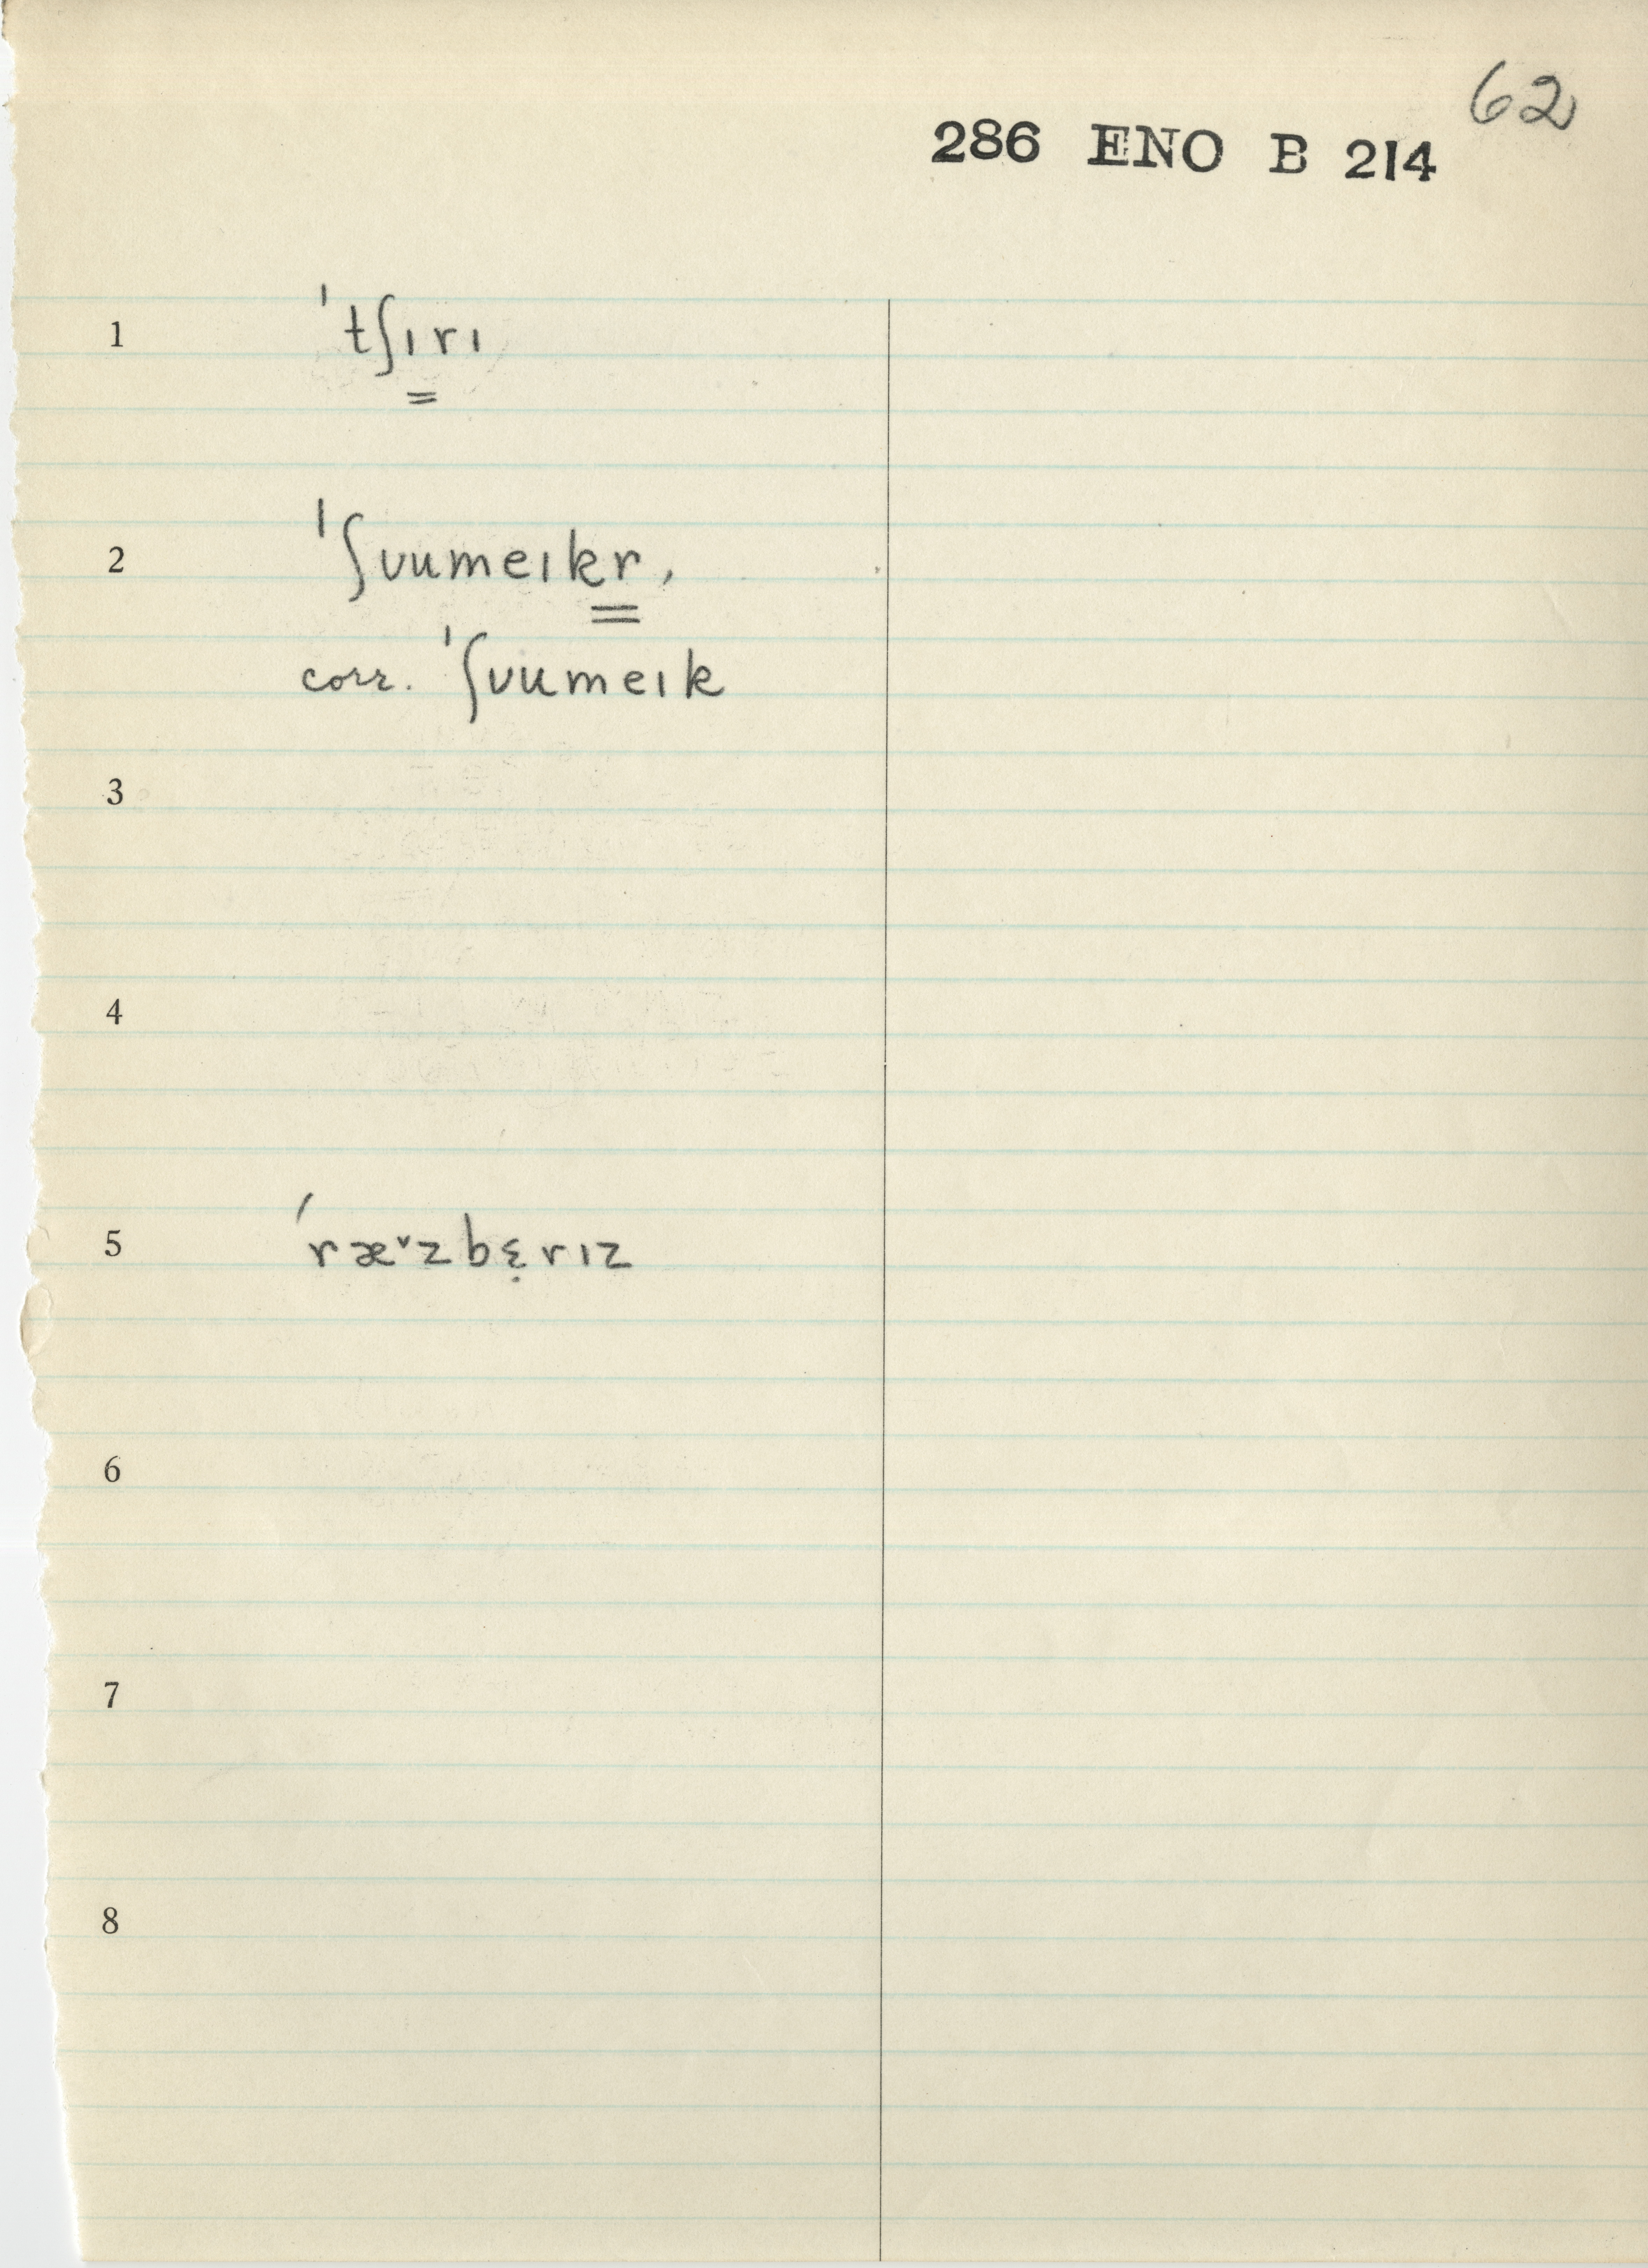 62
286 ENO B 214
1 ˈtʃɪrɪ
2 ˈʃʊumeɪkr,
corr. ˈʃʊumeɪk
3
4
5 ˈræ˅zbɛ̣rɪz
6
7
8